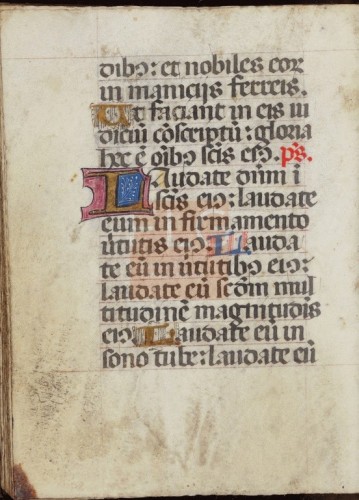 dibꝯ: et nobiles eor
in manicijs ferreis.
Ut faciant in eis iu
diciū cōscriptū: gloria
hec ē oībꝯ scīs eiꝯ. p̄s.
Laudate dnm̄ ī
scīs eiꝯ: laudate
eum in firmamento
v̄tutis eiꝯ. Lauda
te eū in v̄tutibꝯ eiꝯ:
laudate eū scd̄m mul
titudinē magnitudīs
eiꝯ Laudate eū in
sono tube: laudate eū